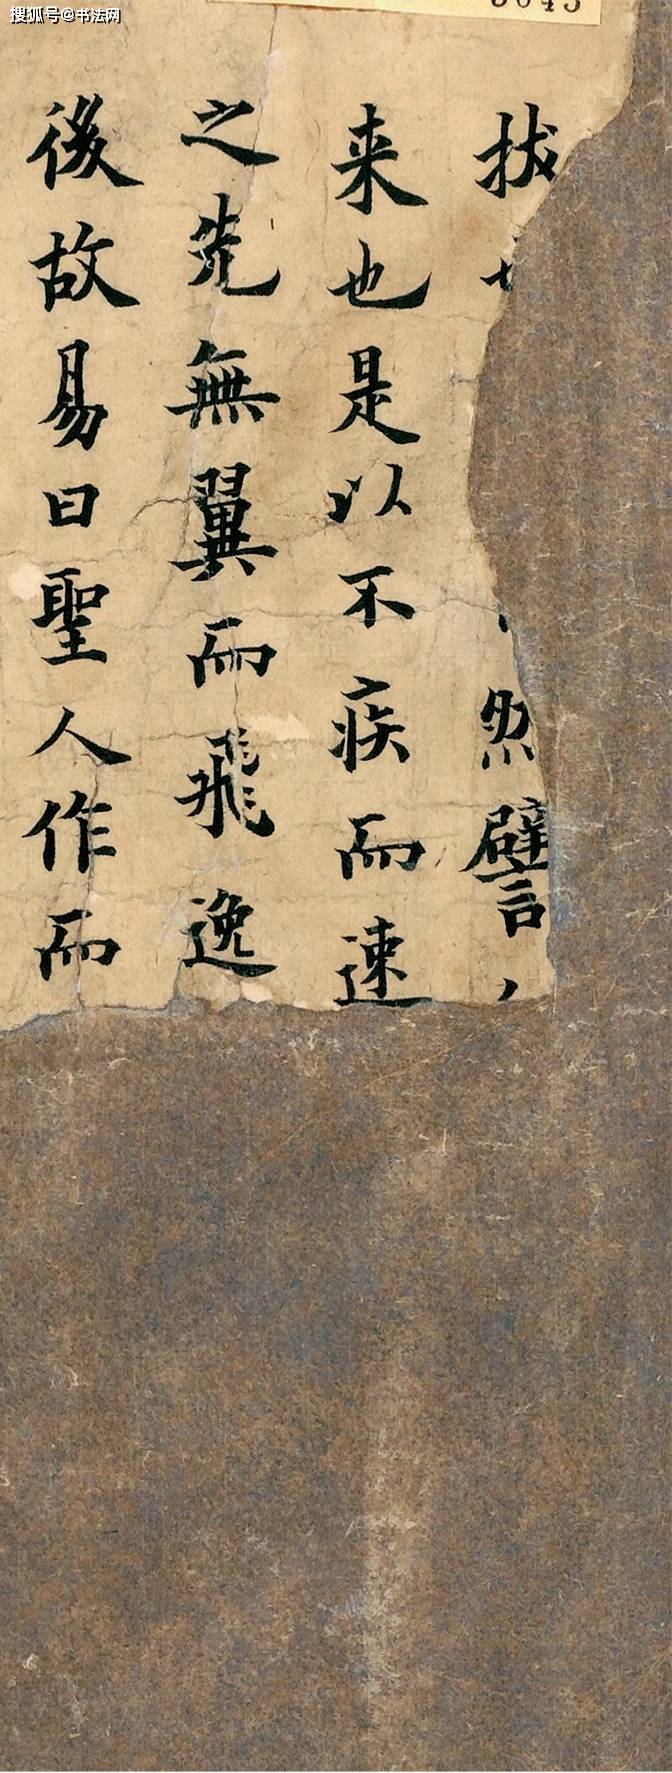 搜狐号@书法网
3045
拔 然譬
来也是以不疾而速
之先無翼而飛逸
後故易曰聖人作而